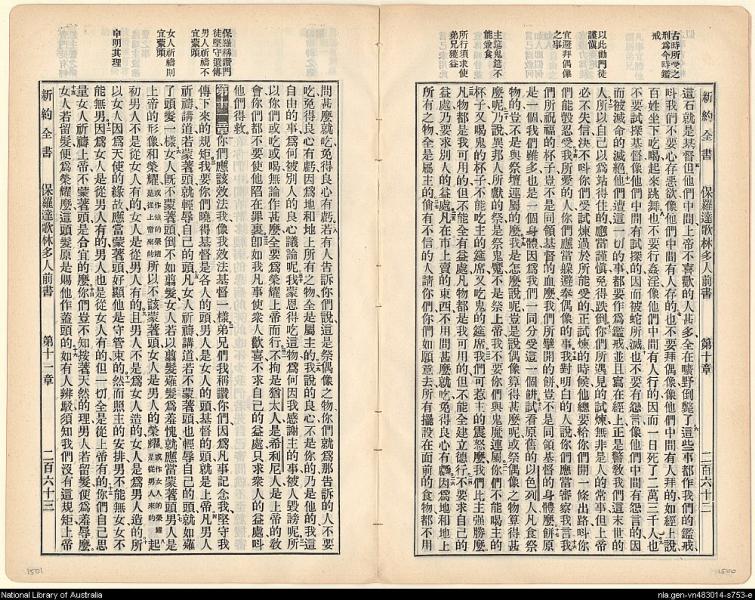 古時所受之
刑爲今時鑑
戒
以此勸門徒
謹愼
宜避拜偶像
之事
主筵鬼筵不
能兼食
所行須求使
弟兄獲益
新約全書 保羅達歌林多人前書 第十章 二百六十二
這石就是基督但他們中間上帝不喜歡的人甚多全在曠野倒斃了這些事都作我們的鑑戒
呌我們不要心存惡欲像他們中間有人存的也不要拜偶像像他們中間有人拜的如經上說
百姓坐下吃喝起來跳舞也不要行姦淫像他們中間有人行的因而一日死了二萬三千人也
不要試探基督像他們中間有試探的因而被蛇所滅也不要有怨言像他們中間有怨言的因
而被滅命的滅絕他們遭這一切的事都要作爲鑑戒並且寫在經上正是警敎我們這末世的
人所以自己以爲站得住的應當謹愼免得跌倒你們所遇見的試煉無非是人的常事但上帝
必不失信决不呌你們受試煉過於所能受的正試煉的時候他總要給你們開一條出路呌你
們能彀忍受我所愛的人你們應當躱避奉偶像的事我對明白的人說你們應當審察我言我
們所祝福的杯子豈不是同領基督的血麼我們所擘開的餅豈不是同領基督的身體麼餅原
是一個我們雖多也是一個身體因爲我們一同分受這一個餅試看原舊的以色列人凡食祭
物的豈不是與祭壇這屬的麼我是怎麼說呢豈是說偶像算得甚麼呢祭偶像之物算得甚
麼呢乃說異邦人所獻的祭是祭鬼魔不是祭上帝我不要你們與鬼魔連屬你們不能喝主的
杯子又喝鬼的杯子不能吃主的筵席又吃鬼的筵席我們可惹主的震怒麼我們比主強勝麼
凡物都是我可用的但不能全有益處凡物都是我可用的但不能全建立德行不要求自己的
益處乃要求別人的益處凡在市上賣的東西不用問甚麼就吃免得良心有虧因爲地和地上
所有之物全是屬主的倘有不信的人請你們你們如願意去所有擺設在面前的食物都不用
保羅稱讚門
徒堅守遺傳
男人祈禱不
宜蒙頭
女人祈禱則
宜蒙頭
申明其理
問甚麼就吃免得良心有虧若有人吿訴你們說這是祭偶像之物你們就爲那吿訴的人不要
吃免得良心有虧因爲地和地上所有之物全是屬主的我說的良心不是你的乃是他的我這
自由的事爲何被別人的良心議論呢我蒙恩得吃這物爲何因我感謝主的事被人毀謗呢所
以你們或吃或喝無論作甚麼全要爲榮耀上帝而行不拘是猶太人是希利尼人是上帝的敎
會你們都不要使他陷在罪裏卽如我凡事使衆人歡喜不求自己的益處只求衆人的益處呌
他們得救
第十一章你們應該效法我像我效法基督一樣弟兄們我稱讚你們因爲凡事記念我堅守我
傳下來的規矩我要你們曉得基督是各人的頭男人是女人的頭基督的頭就是上帝凡男人
祈禱講道若蒙著頭就輕辱自己的頭凡女人祈禱講道若不蒙著頭也輕辱自己的頭就如薙
了頭髮一樣女人旣不蒙著頭倒不如翦髮女人若以翦髮薙髮爲羞愧就應當蒙著頭男人是
上帝的形像和榮耀所以不該蒙著頭女人是男人的榮耀起
初男人不是從女人有的女人是從男人有的且男人不是爲女人造的女人是爲男人造的所
以女人因爲天使的緣故應當蒙著頭好顯他是守管束的然而照主的安排男不能無女女不
能無男因爲女人是從男人有的男人也是從女人有的但一切全是從上帝有的你們自己思
量女人祈禱上帝不蒙著頭是合宜的麼你們豈不知按著天然的理男人若留髮便爲羞辱麼
女人若留髮便爲榮耀麼這頭髮原是賜他作蓋頭的如有人辨駁須知我們沒有這規矩上帝
新約全書 保羅達歌林多人前書 第十一章 二百六十三
1501
1500
National Library of Australia
nla.gen-vn483014-s753-e